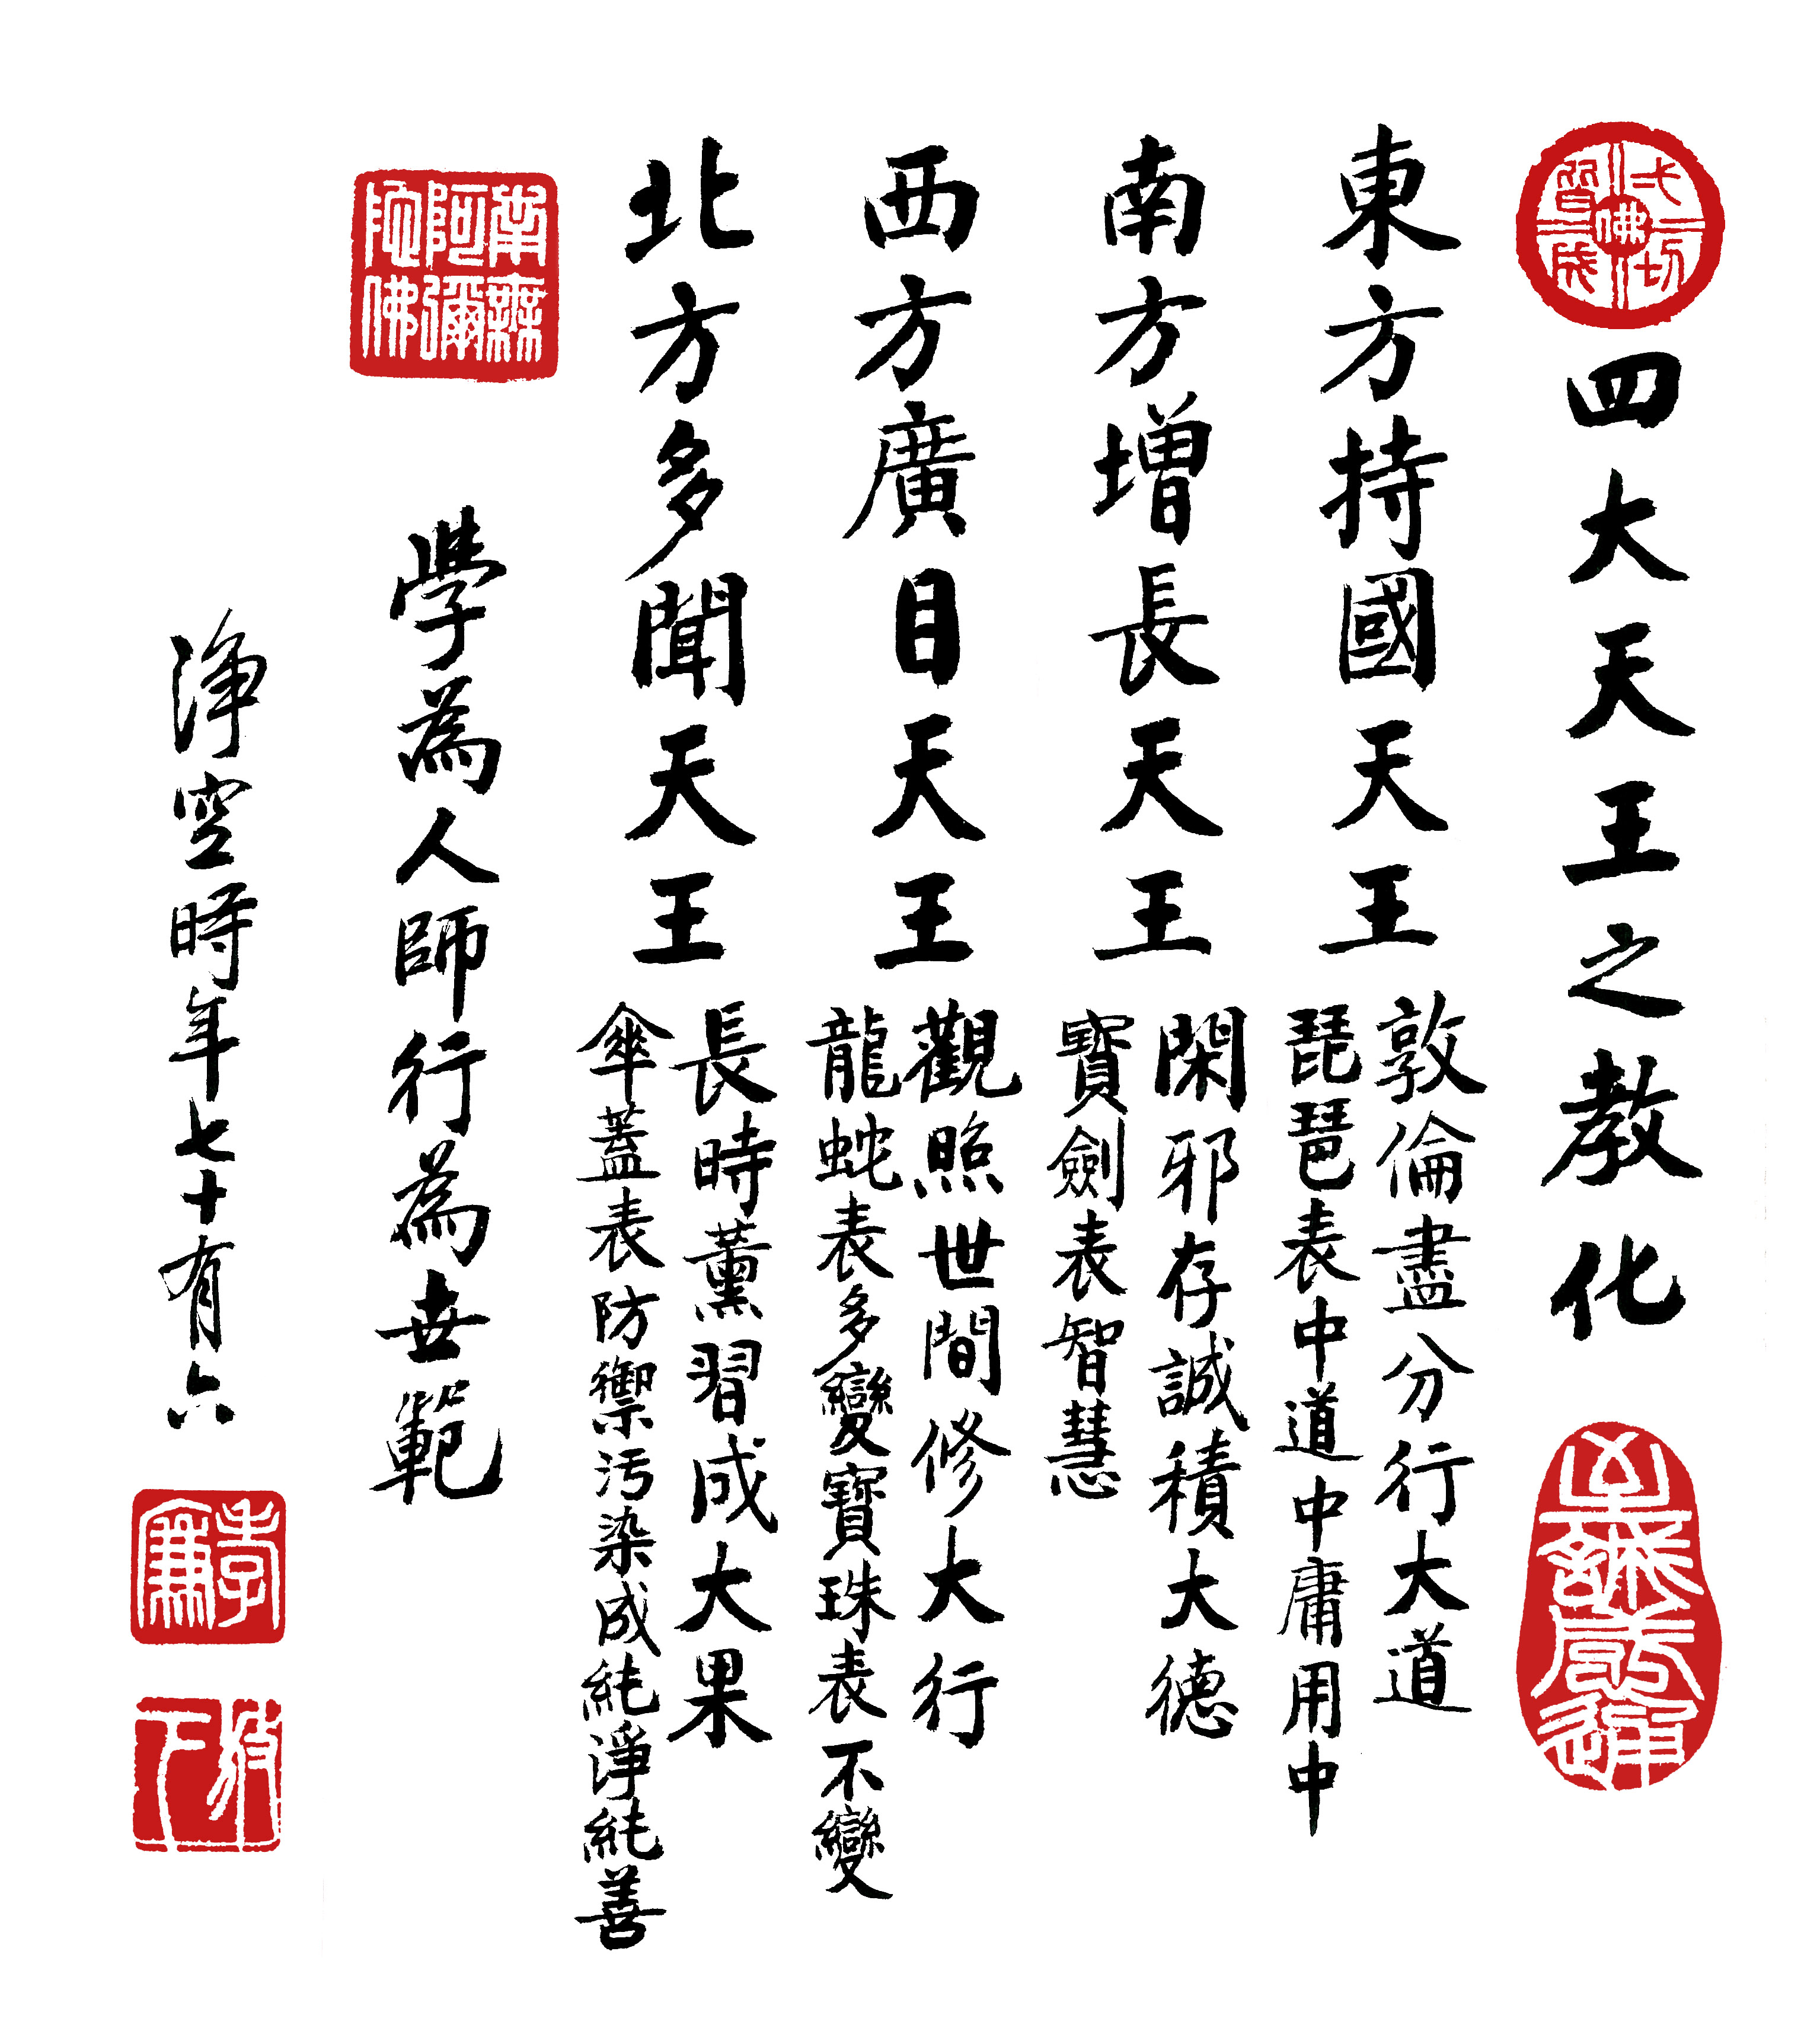 一切佛成一切智
四大天王之教化
至誠感通
東方持國天王
敦倫盡分行大道
琵琶表中道中庸用中
南方增長天王
閑邪存誠積大德
寶劍表智慧
西方廣目天王
觀照世間修大行
龍蛇表多變寶珠表不變
北方多聞天王
長時薰習成大果
傘蓋表防禦污染成純淨純善
南無阿彌陀佛
學為人師行為世範
淨空時年七十有六
孝廉